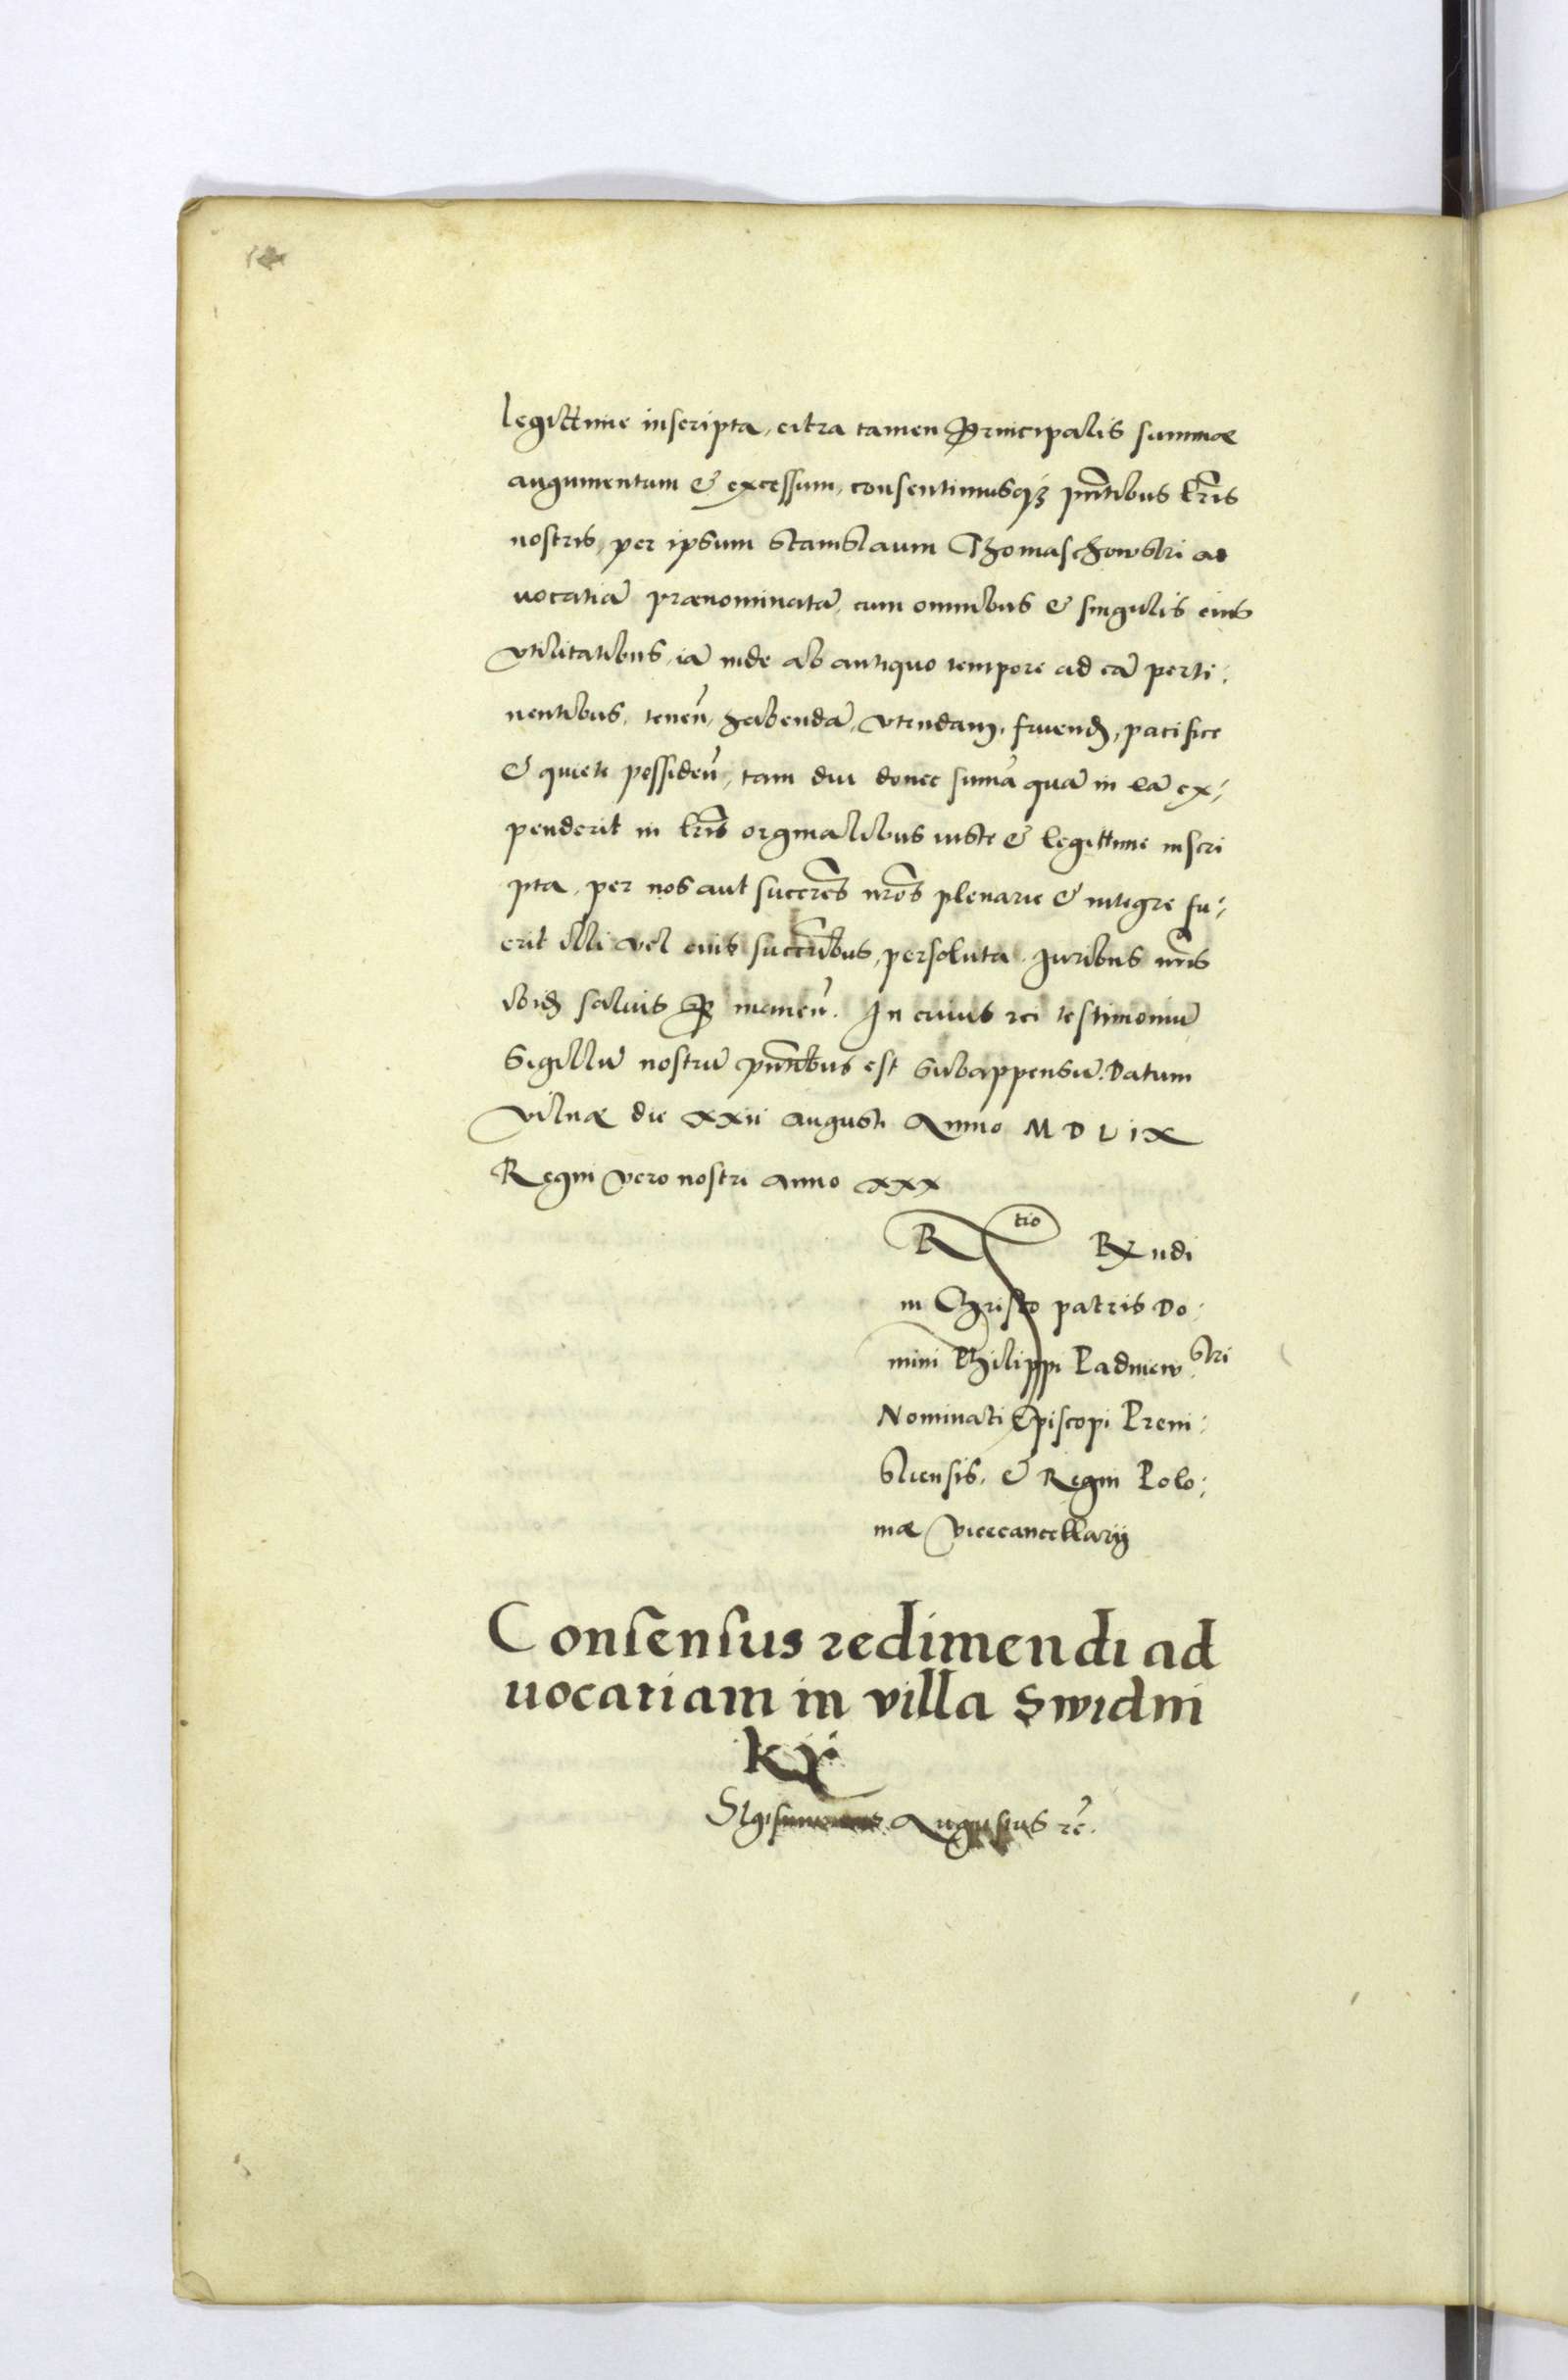 legittime inscripta, citra tamen principalis summæ
augumentum & excessum, consentimusq₃ pn̄tibus l̄ris
nostris, per ipsum Stanislaum Thomaschowski ad
uocatiā prænominatā, cum omnibus & singulis eius
vtilitatibus, iā inde ab antiquo tempore ad eā perti:
nentibus, teneñ, habendā, vtendam, fruend, pacifice
& quiete possideñ, tam diu donec summā quā in eā ex:
penderit in l̄ris originalibus iuste & legittime inscri
pta, per nos aut succr̄es nr̄os plenarie & integre fu:
erit illi vel eius succr̄ibus, persoluta. Iuribus nr̄is
ibid saluis per maneñ. In cuius rei testimoniū
Sigillū nostrū pn̄tibus est subappensū. Datum
Vilnæ die xxii augusti Anno M D L IX
Regni vero nostri anno xxx
R tio Rx ndi
in Christo patris Do:
mini Philippi Padniewski
Nominati Episcopi Premi:
sliensis, & Regni Polo:
niæ Vicecancellarij
Consensus redimendi ad
uocatiam in villa Swidni
ky
Sigismundus Augustus rē.